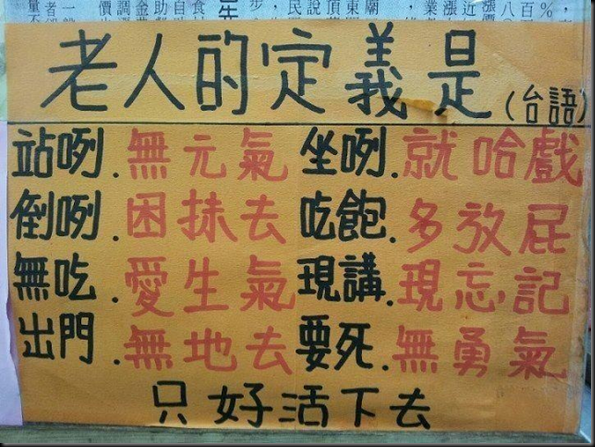 老人的定義是(台語)
站咧.無元氣 坐咧.就哈戲
倒咧.困抹去 吃飽.多放屁
無吃.愛生氣 現講.現忘記
出門.無地去 要死.無勇氣
只好活下去